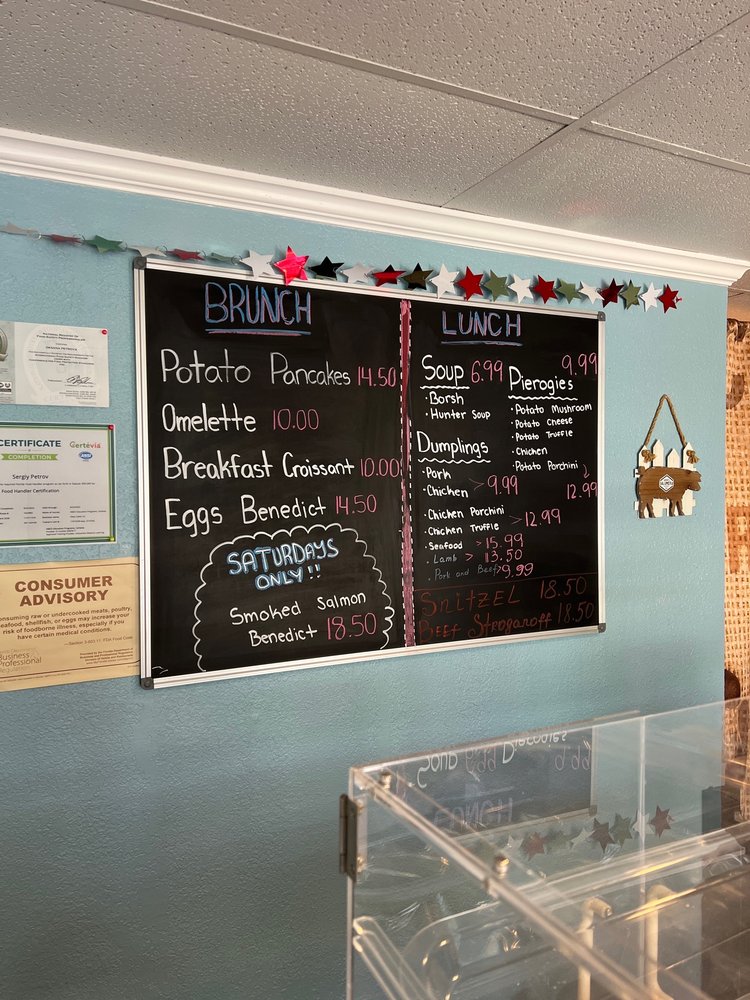 BRUNCH
Potato Pancakes 14.50
Omelette 10.00
Breakfast Croissant 10.00
Eggs Benedict 14.50
SATURDAYS
ONLY !!
Smoked Salmon
Benedict 18.50
LUNCH
Soup 6.99
• Borsh
• Hunter Soup
Dumplings
• Pork
• Chicken > 9.99
• Chicken Porchini
• Chicken Truffle > 12.99
• Seafood > 15.99
• Lamb > 13.50
• Pork and Beef > 9.99
9.99
Pierogies
• Potato Mushroom
• Potato Cheese
• Potato Truffle
• Chicken
• Potato Porchini
12.99
SnitZEL 18.50
BEEF Stroganoff 18.50
CERTIFICATE
OF COMPLETION
Certevia
Sergiy Petrov
Food Handler Certification
CONSUMER
ADVISORY
onsuming raw or undercooked meats, poultry,
eafood, shellfish, or eggs may increase your
risk of foodborne illness, especially if you
have certain medical conditions.
—Section 3-603.11, FDA Food Code
Business
Professional